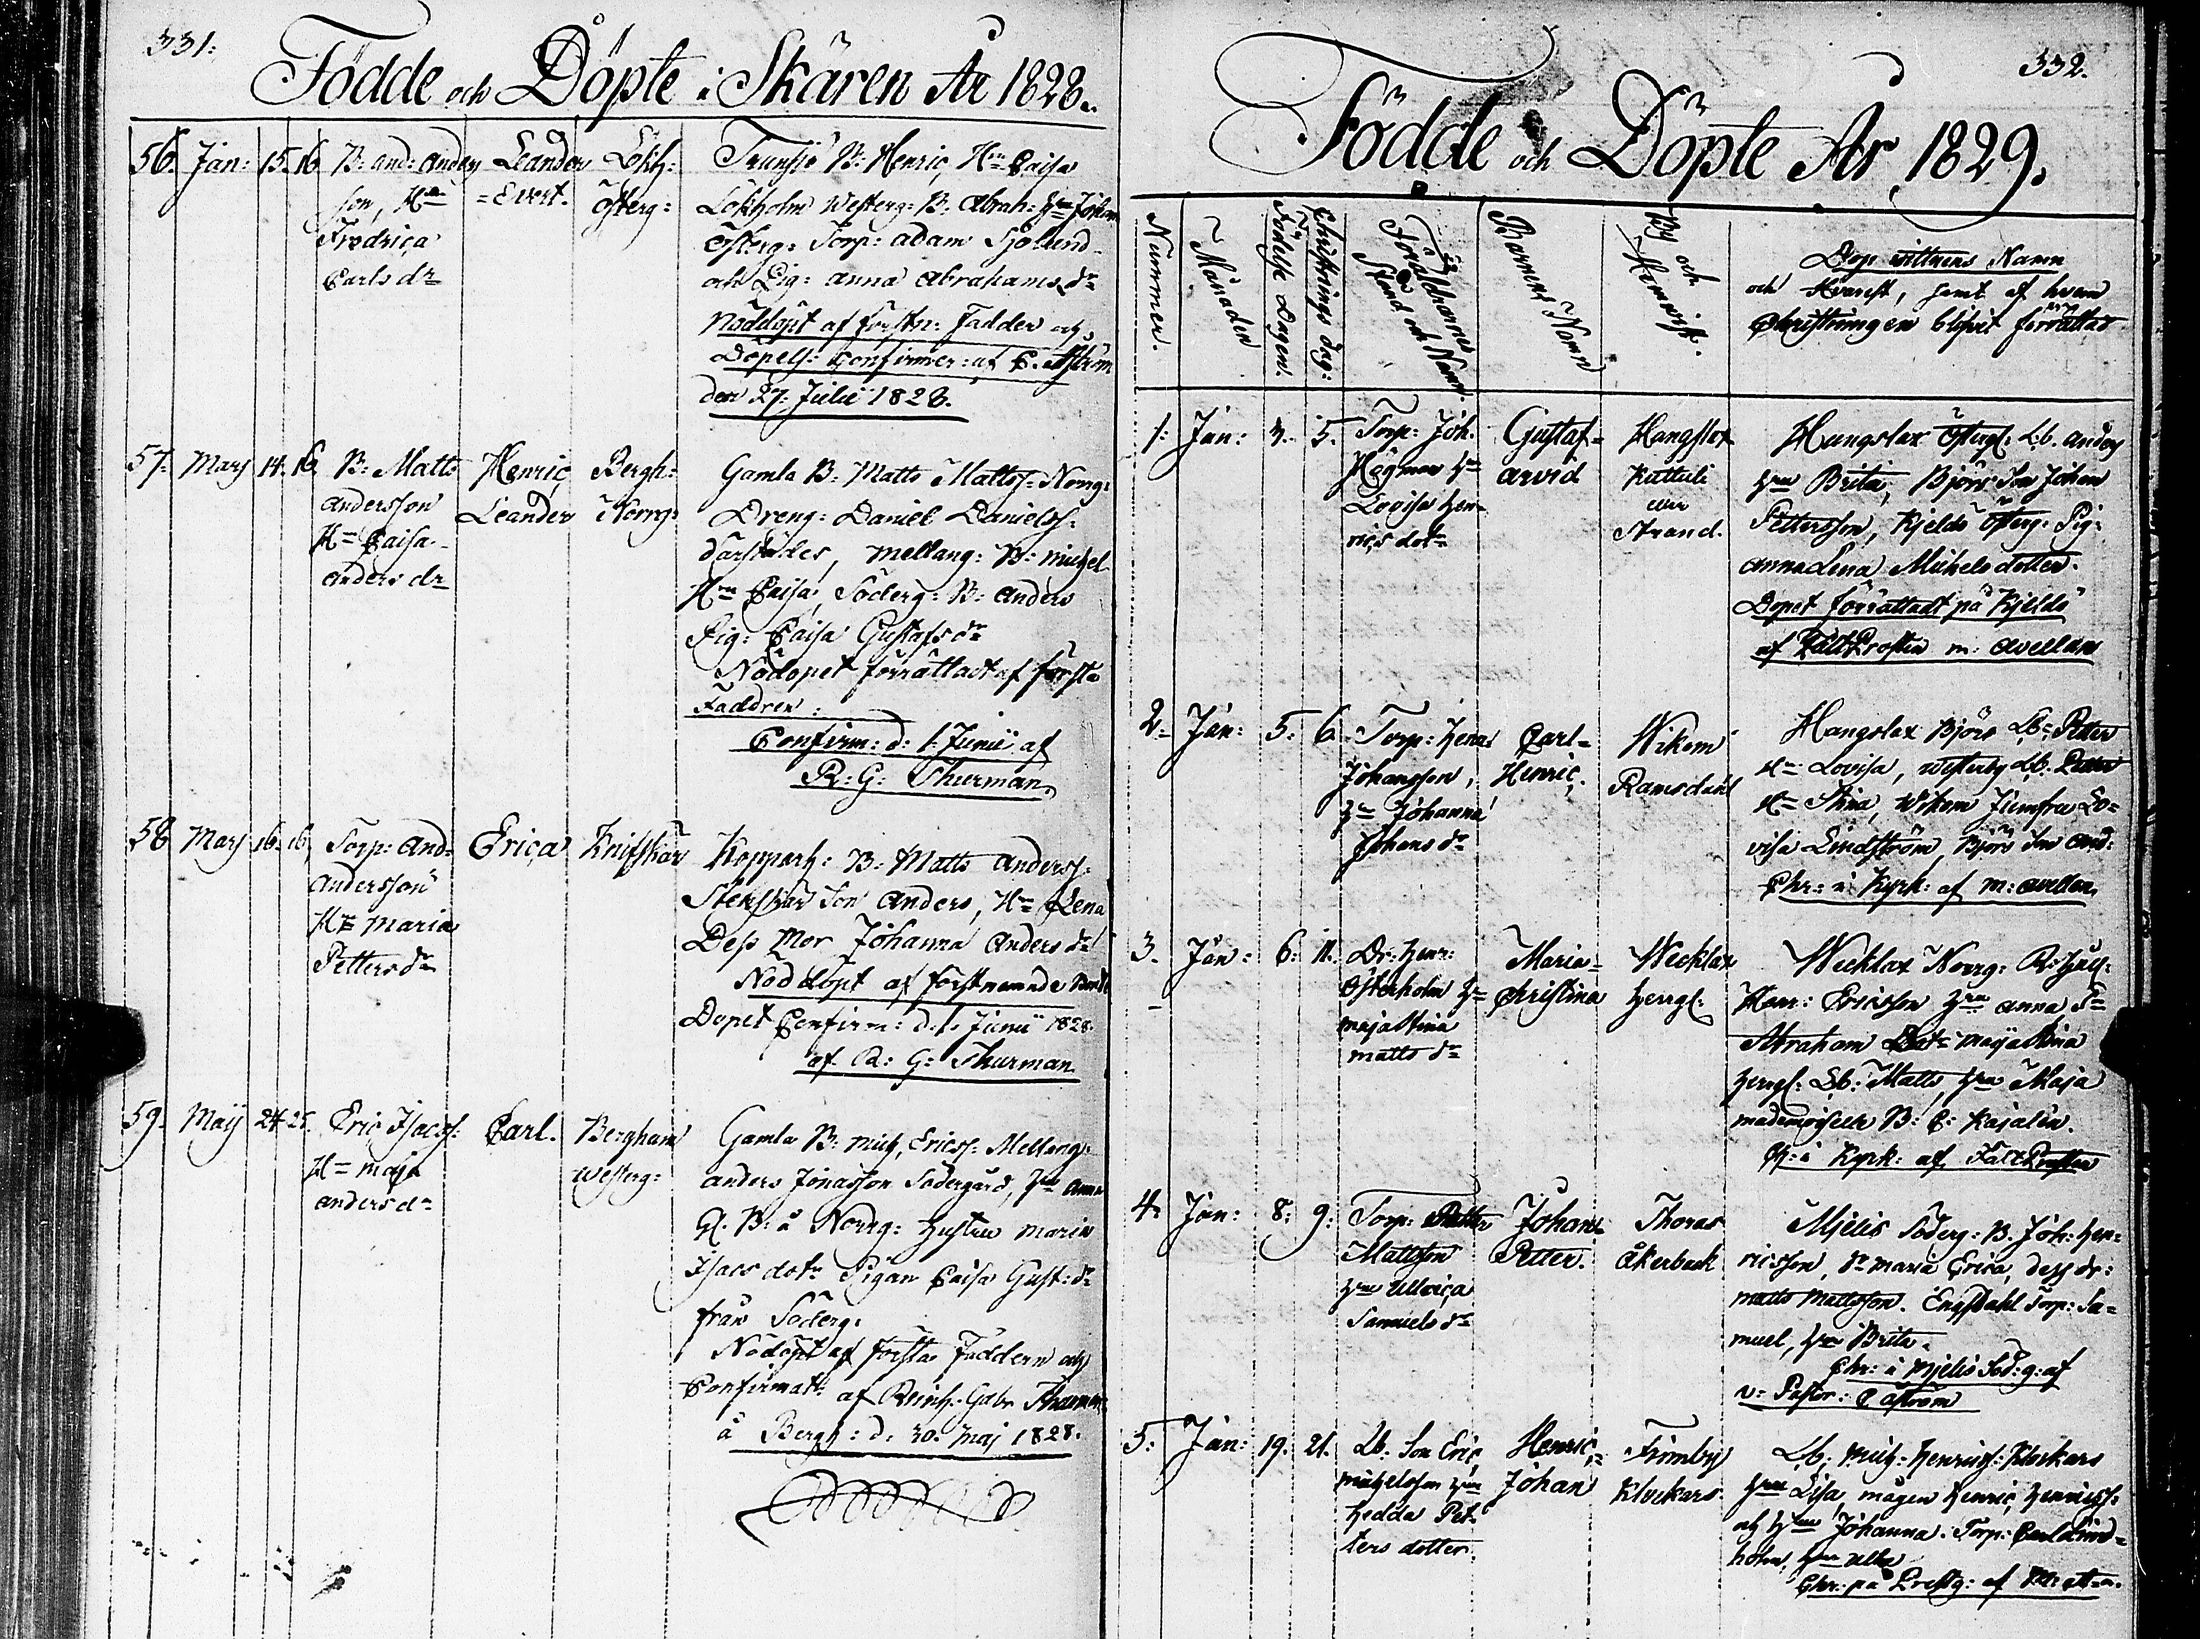 331:
Födde och Döpte i Skären År 1828.
56. Jan: 15. 16. B: And: Anders
son, Hu
Fredrica
Carls dr
Leander
=Evert.
Lökh:
Österg:
Trunsö B: Henric, Hu Caisa
Lökholm Westerg: B: Abrah: Hu Johan
Österg: Torp: Adam Sjölund
och Pig: Anna Abrahams dr
Nöddöpt af förstn: Fadder och
Dopels: Confirmer: af C. Aström
den 27. Julii 1828.
57. Mars 14. 16. B: Matts
Andersson
Hu Caisa
Anders dr
Henric
Leander
Bergh:
Norrg:
Gamla B: Matts Mattss: Norrg:
Dreng: Daniel Danielss:
därstädes, Mellang: B: Michel
Hu Caisa, Söderg: B: Anders
Pig: Caisa Gustafs dr
Nödopet förrättadt af första
Faddren:
Confirm: d: 1. Junii af
R: G: Thurman.
58. Mars 16. 16. Torp: And:
Andersson
Hu Maria
Petters dr
Erica
Knifskär
Kopparh: B: Matts Anderss:
Stenskär Son Anders, Hu Lena
Dess Mor Johanna Anders dr
Nöddöpt af förstnämnde
Dopet Confirm: d. 1. Junii 1828.
af R: G: Thurman
59. Maij 24. 25. Eric Isacss:
Hu Maja
Anders dr
Carl.
Bergham
Westerg:
Gamla B: Mich, Ericss: Mellang:
Anders Jonasson Södergård, Hu Anna
Gl. B: å Norrg: Hustru Maria
Isacs dotr Pigan Caisa Gust: dr
från Söderg:
Nödöpt af första Faddern och
Confirmatt: af Reinh: Gabr Thurman
å Bergh: d: 30. Maj 1828.
332.
Födde och Döpte År 1829.
Nummer.
Månaden
Födelse Dagen.
Christnings dag:
Föräldrarnes
Stånd och Namn
Barnens Namn
By och
Hemvist.
Dop vittnens Namn
och Hvarest, samt af hvem
Christningen blifvit förrättad
1: Jan: 3. 5. Torp: Joh.
Högman Hu
Lovisa Hen=
rics dotr
Gustaf=
Arvid
Hangslax
Kuttuli
eller
Strand.
Hangslax Österg: Lb. Anders
Hru Brita, Björs Son Johan
Pettersson, Kjeldö Österg: Pig:
Anna Lena Michels dotter.
Dopet förrättadt på Kjeldö
af FältProsten m: Avellan
2. Jan: 5. 6. Torp: Henr:
Johansson,
Hu Johanna
Johans dr
Carl=
Henric.
Wikom
Ramsdahl
Hangslax Björs Lb: Petter
Hu Lovisa, Westerby Lb. Petter
Hu Stina, Wikom Jumfru Lo=
visa Lindström, Björs Son And:
Chr: i Kyrk: af m: Avellan
3. Jan: 6. 11. Dr: Henr:
Österholm Hu
Maja Stina
Matts dr
Maria=
Christina
Wecklax
Herrg:
Wecklax Norrg: R: Husb:
Henr: Ericsson Hru Anna Sn
Abraham Dotr Maja Stina
Herrg: Lb: Matts, Hru Maja
Mademoiselle B: C: Kajalén.
Ch: i Kyrk: af FältProsten
4. Jan: 8. 9. Torp: Petter
Mattsson
Hru Ulrica
Samuels dr
Johan
Petter.
Thoras
Åkerback
Mjelis Söderg: B. Joh: Hen=
ricsson, dr Maria Erica, dess dr:
Matts Mattsson. Engsdahl Torp: Sa=
muel, Hru Brita.
Chr: i Mjelis Söd: g: af
v: Pastor: C Aström
5. Jan: 19. 21. Lb. Son Eric
Michelsson Hru
Hedda Pet
ters dotter.
Henric=
Johan
Finnby
Klockars
Lb: Mich: Henricss: Klockars
Hru Lisa, mågen Henric Henricss:
och Hru Johanna. Torp: Carl Lind=
holm, Hru Ulla
Chr: på Prestg: af